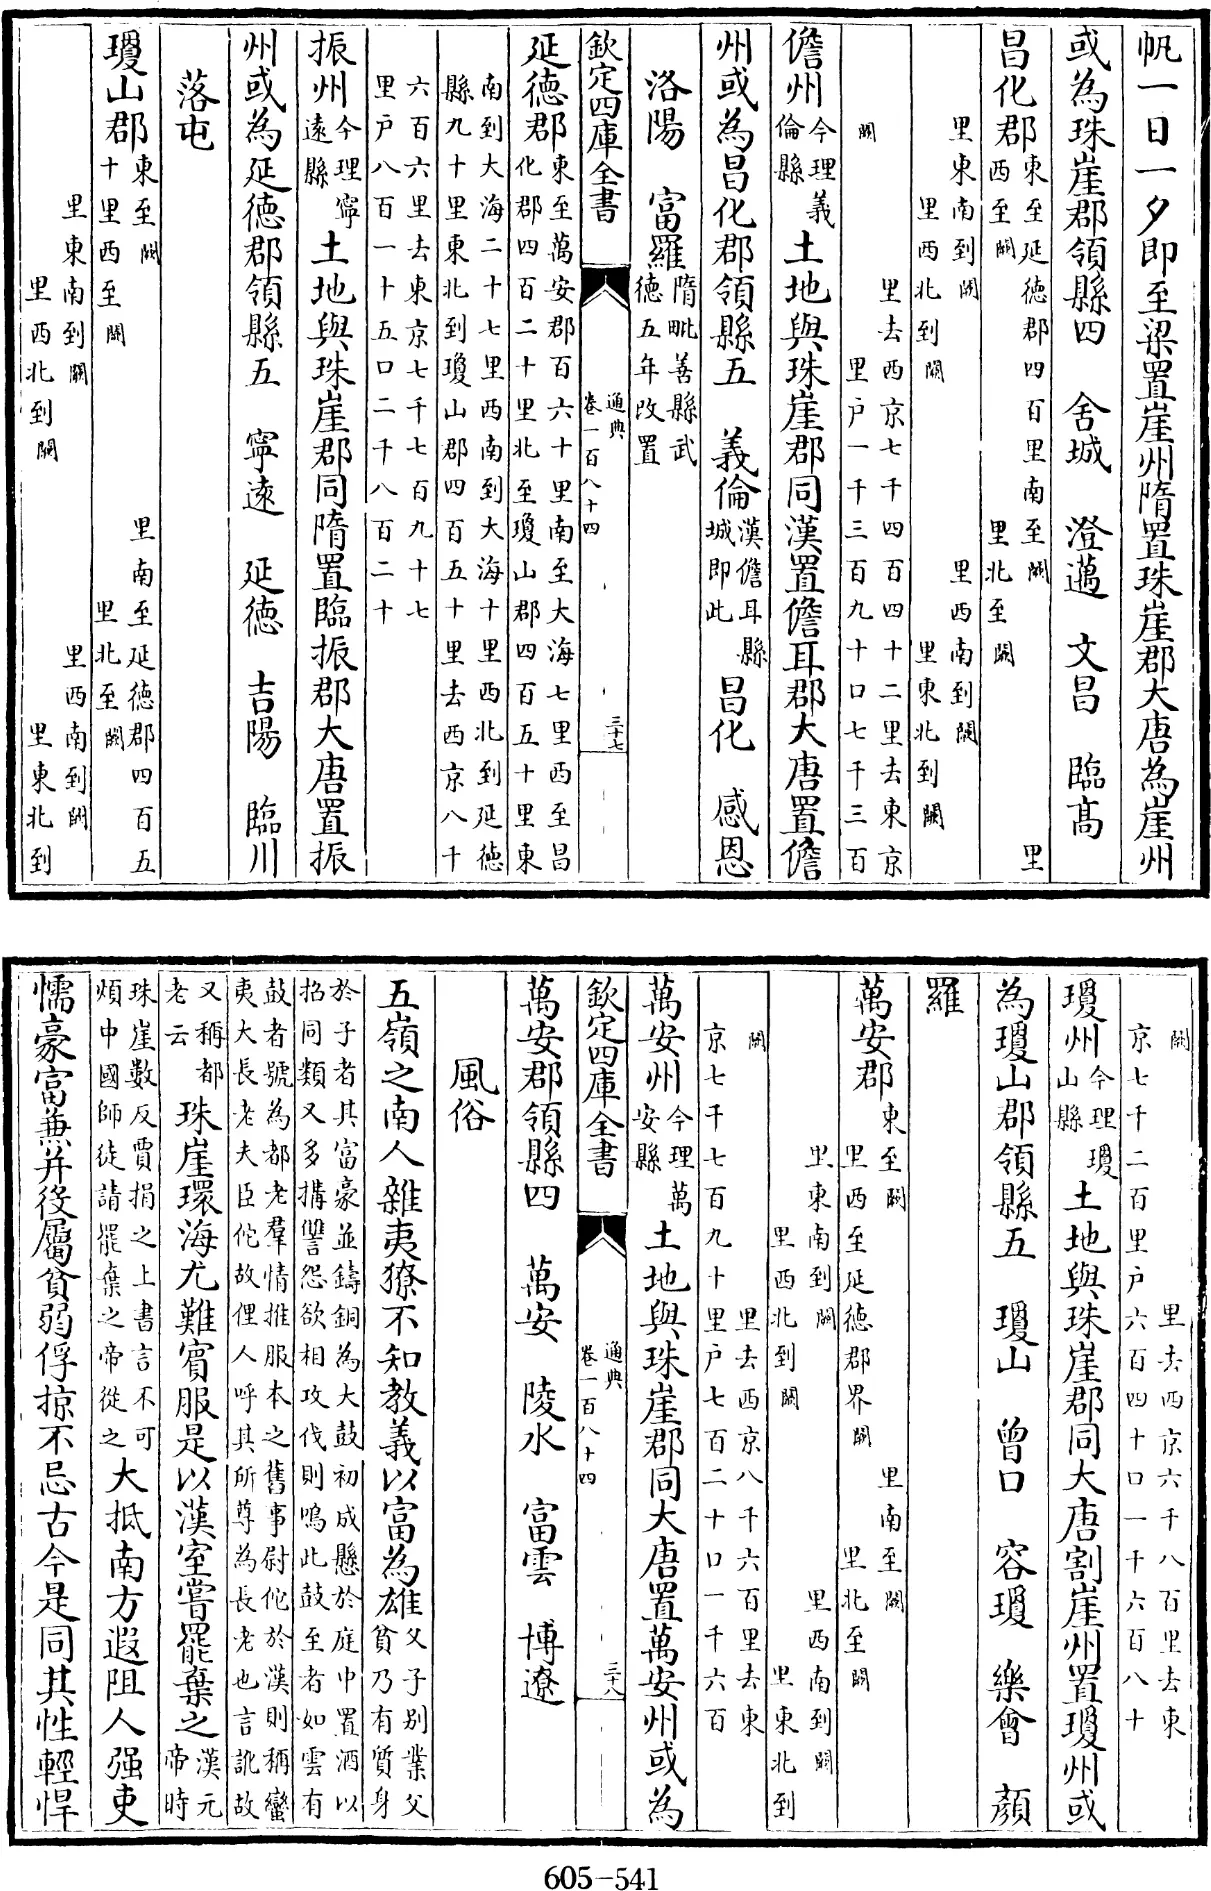 帆一日一夕即至梁置崖州隋置珠崖郡大唐為崖州
或為珠崖郡領縣四　舍城　澄邁　文昌　臨髙
昌化郡東至延德郡四百里南至闕里
西至闕里北至闕
里東南到闕里西南到闕
里西北到闕里東北到闕
闕里去西京七千四百四十二里去東京
里户一千三百九十口七千三百
儋州今理義倫縣土地與珠崖郡同漢置儋耳郡大唐置儋
州或為昌化郡領縣五　義倫漢儋耳縣城即此　昌化　感恩
洛陽　富羅隋毗善縣武德五年改置
欽定四庫全書　通典卷一百八十四　三十七
延德郡東至萬安郡百六十里南至大海七里西至昌
化郡四百二十里北至瓊山郡四百五十里東
南到大海二十七里西南到大海十里西北到延德
縣九十里東北到瓊山郡四百五十里去西京八千
六百六里去東京七千七百九十七
里户八百一十五口二千八百二十
振州今理寧遠縣土地與珠崖郡同隋置臨振郡大唐置振
州或為延德郡領縣五　寧遠　延德　吉陽　臨川
落屯
瓊山郡東至闕里南至延德郡四百五
十里西至闕里北至闕
里東南到闕里西南到闕
里西北到闕里東北到
闕里去西京六千八百里去東
京七千二百里户六百四十口一千六百八十
瓊州今理瓊山縣土地與珠崖郡同大唐割崖州置瓊州或
為瓊山郡領縣五　瓊山　曾口　容瓊　樂會　顏
羅
萬安郡東至闕里南至闕
里西至延德郡界闕里北至闕
里東南到闕里西南到闕
里西北到闕里東北到
闕里去西京八千六百里去東
京七千七百九十里户七百二十口一千六百
萬安州今理萬安縣土地與珠崖郡同大唐置萬安州或為
欽定四庫全書　通典卷一百八十四　三十八
萬安郡領縣四　萬安　陵水　富雲　博遼
風俗
五嶺之南人雜夷獠不知教義以富為雄父子别業父
貧乃有質身
於子者其富豪並鑄銅為大鼓初成懸於庭中置酒以
招同類又多搆讐怨欲相攻伐則鳴此鼓至者如雲有
鼓者號為都老羣情推服本之舊事尉佗於漢則稱蠻
夷大長老夫臣佗故俚人呼其所尊為長老也言訛故
又稱都老云　珠崖環海尤難賓服是以漢室嘗罷棄之漢元
帝時
珠崖數反賈捐之上書言不可
煩中國師徒請罷棄之帝從之大抵南方遐阻人强吏
懦豪富兼并役屬貧弱俘掠不忌古今是同其性輕悍
605-541